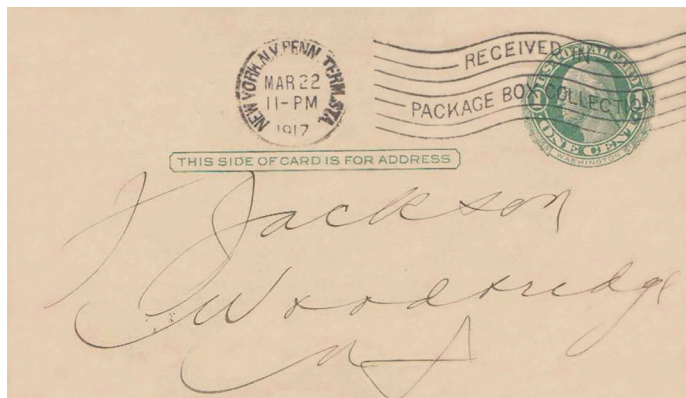 NEW YORK, N.Y. PENN. TERM. STA.
MAR 22
11-PM
1917
RECEIVED IN
PACKAGE BOX COLLECTION
ONE CENT
WASHINGTON
THIS SIDE OF CARD IS FOR ADDRESS
Jackson
Woodridge